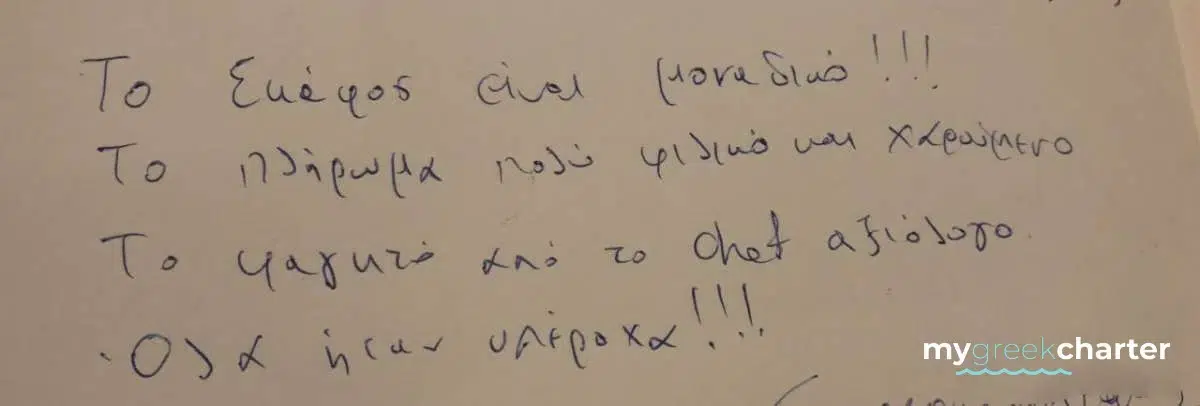 Το Σκάφος είναι μοναδικό!!!
Το πλήρωμα πολύ φιλικό και χαρούμενο
Το φαγητό από το Chef αξιόλογο.
Όλα ήταν υπέροχα!!!
mygreekcharter